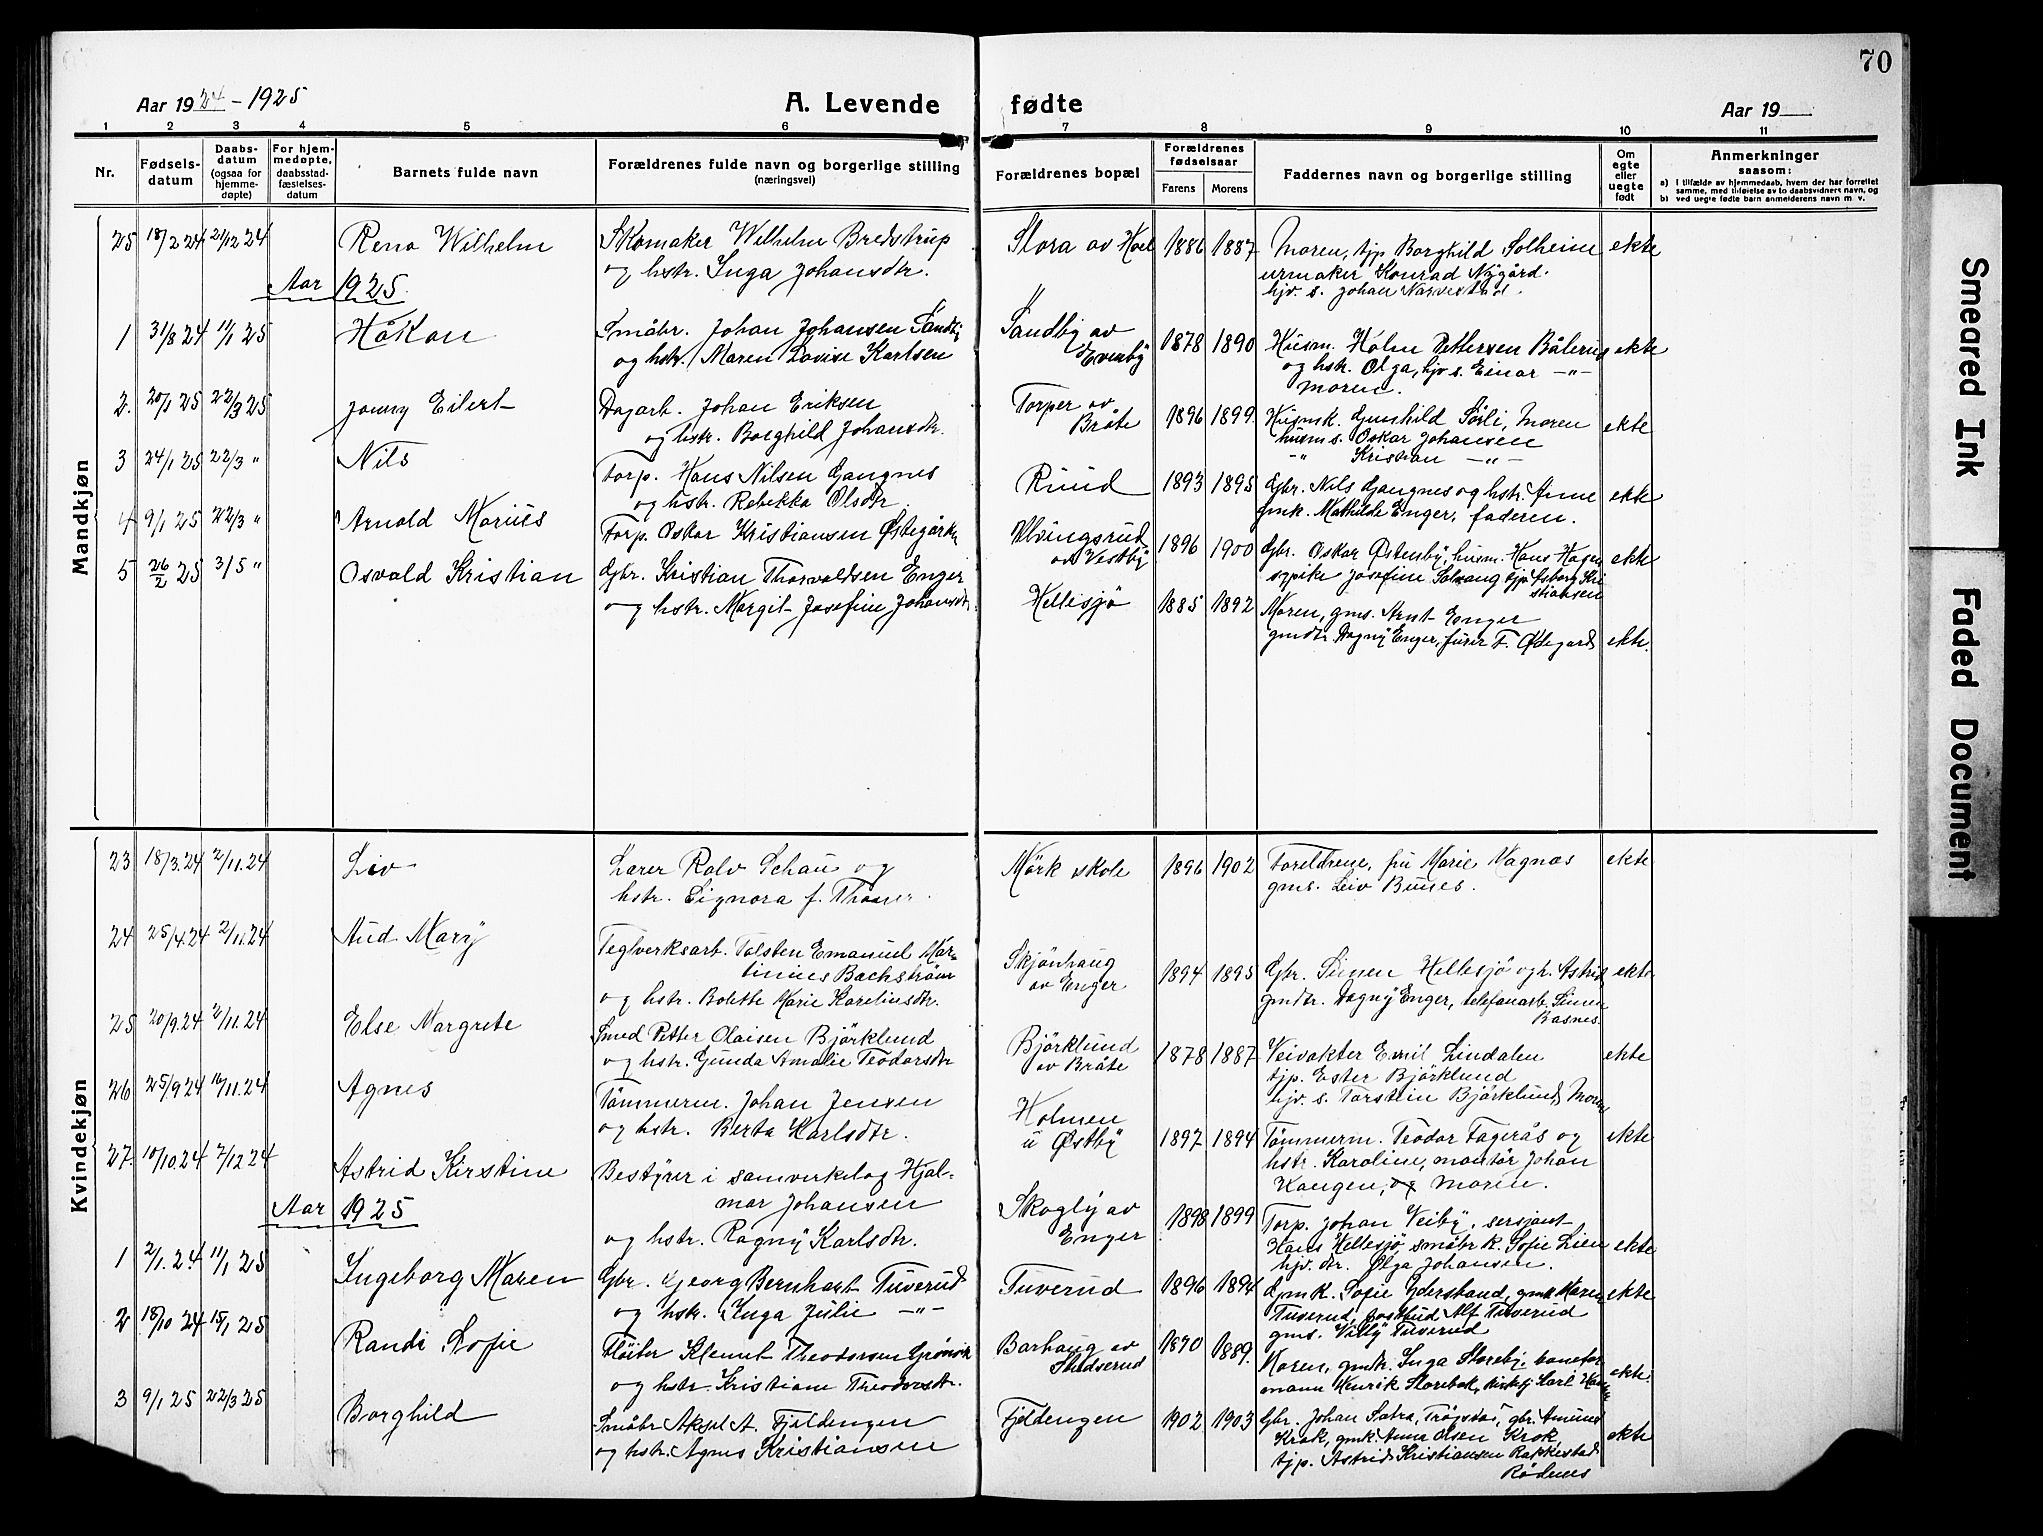 70
Aar 1924 - 1925
A. Levende fødte
Aar 19
1 2 3 4 5 6 7 8 9 10 11
Nr.
Fødsels-
datum
Daabs-
datum
(ogsaa for
hjemme-
døpte)
For hjem-
medøpte,
daabsstad-
fæstelses-
datum
Barnets fulde navn
Forældrenes fulde navn og borgerlige stilling
(næringsvei)
Forældrenes bopæl
Forældrenes
fødselsaar
Farens Morens
Faddernes navn og borgerlige stilling
Om
egte
eller
uegte
født
Anmerkninger
saasom:
a) i tilfælde av hjemmedaab, hvem der har forrettet
samme, med tilføielse av to daabsvidners navn, og
b) ved uegte fødte barn anmelderens navn m. v.
Mandkjøn
25 18/2 24 21/12 24 Reno Wilhelm
Skomaker Wilhelm Bredstrup
og hstr. Inga Johansdtr.
Slora av 1886 1887
Moren, tjp Borghild Solheim ekte
urmaker Konrad Nygård.
hjv. s. Johan
Aar 1925.
1 31/8 24 11/1 25 Håkon
Småbr. Johan Johansen Sandby
og hstr. Maren Lovise Karlsen
Sandby av
Evenby 1878 1890
Husm. Holm Pettersen Bålerud ekte
og hstr. Olga, hjv s. Einar -"-
Moren.
2. 20/1 25 22/3 25 Jonny Eilert
Dagarb. Johan Eriksen
og hstr. Borghild Johansdtr.
Torper av
Bråte 1896 1899.
Husmk. Gunhild Sørli, Moren ekte
husm s. Oskar Johansen
-"- Kristian -"-
3 24/1 25 22/3 " Nils
Forp. Hans Nilsen Gangnes
og hstr. Rebekka Olsdtr.
Ruud 1893 1895
Gbr. Nils Gangnes og hstr. Anne ekte
gmk. Mathilde Enger, faderen.
4 9/1 25 22/3 " Arnold Marius
Forp. Oskar Kristiansen Østegårn
Ulvingsrud
av Vestby 1896 1900
Gbr. Oskar Østenby, husm. Hans Hagen ekte
s.pike Josefine Solvang tjp Asborg Kri
stiansen
5 26/2 25 3/5 " Osvald Kristian
Gbr. Kristian Thorvaldsen Enger
og hstr. Margit Josefine Johansdtr.
Hellesjø 1885 1892
Moren, gms. Arnt Enger
gmdtr Dagny Enger, T. Ødegard ekte.
Kvindekjøn
23 18/3.24 2/11.24 Liv
Lærer Ralv Schau og
hstr. Signora f.
Mörk skole 1896 1902
Foreldrene, fru Marie Vagnas ekte
gms. Leiv Bunes.
24 25/4.24 2/11.24 Aud Mary
Teglverksarb. Tolsten Emanuel Mar-
tinius Bachström
og hstr. Bolette Marie Kareliusdtr.
Skjönhaug
av Enger 1894 1895
Gbr. Simen Hellesjö og h. Astrid ekte
gmdtr. Dagny Enger, telefonarb. Simen
Basnes.
25 20/9.24 2/11.24 Else Margrete
Smed Petter Olaisen Björklund
og hstr. Gunda Amalie Teodorsdtr
Björklund
av Bråte 1878 1887
Veivokter Emil Lindalen ekte
tjp. Ester Björklund
hjv. s. Torstein Björklund, Moren
26 25/9 24 16/11.24 Agnes
Tömmerm. Johan Jensen
og hstr. Berta Karlsdtr.
Holmen
u Østby 1897 1894
Tömmerm. Teodor Fagerås og ekte
hstr. Karoline, montör Johan
Kongen, og Moren.
27. 10/10.24 7/12 24 Astrid Kirstine
Bestyrer i samvirkelag Hjal-
mar Johansen
og hstr. Ragny Karlsdtr.
Skogly av
Enger 1898 1899
Torp. Johan Veiby, sersjant
Hans Hellesjö småbr k. Sofie Lien ekte
hjv. dtr. Olga Johansen.
Aar 1925
1 2/1.24 11/1 25 Ingeborg Maren
Gbr. Georg Bernhart Tuverud
og hstr. Inga Julie -"-
Tuverud 1896 1894
Gmk. Sofie Ydersland, gmk Maren ekte
Tuverud, postbud Alf Tuverud
gms. Villy Tuverud
2 18/10 24 15/1 25 Randi Sofie
Flöiter Klemet Theodorsen
og hstr. Kristiane Theodorsdtr.
Borhaug av
Slidserud 1870 1889.
Moren, gmk. Inga Storeby, banefor
mann Henrik Storebak, Karl ekte.
3 9/1 25 22/3 25 Borghild
Småbr Aksel A. Fjeldengen
og hstr. Agnes Kristiansen
Fjeldengen 1902 1903
Gbr. Johan Sætra, Trögstad, gbr. Amund
Krok, gmk. Anne Olsen Krok, ekte
tjp. Astrid Kristiansen Rakkestad
Rödenes
Smeared Ink
Faded Document